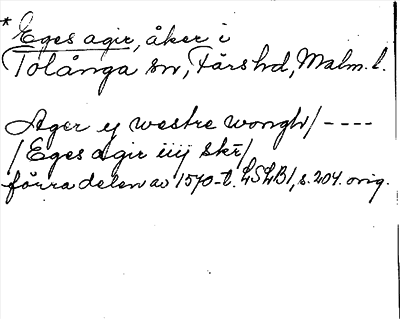 * Eges agir, åker i
Tolånga sn, Färs hd, Malm. l.
Ager ij westre wongh / ----
/ Eges agir iiij skr̄ /
förra delen av 1570-t. LSLB1, s. 204. orig.